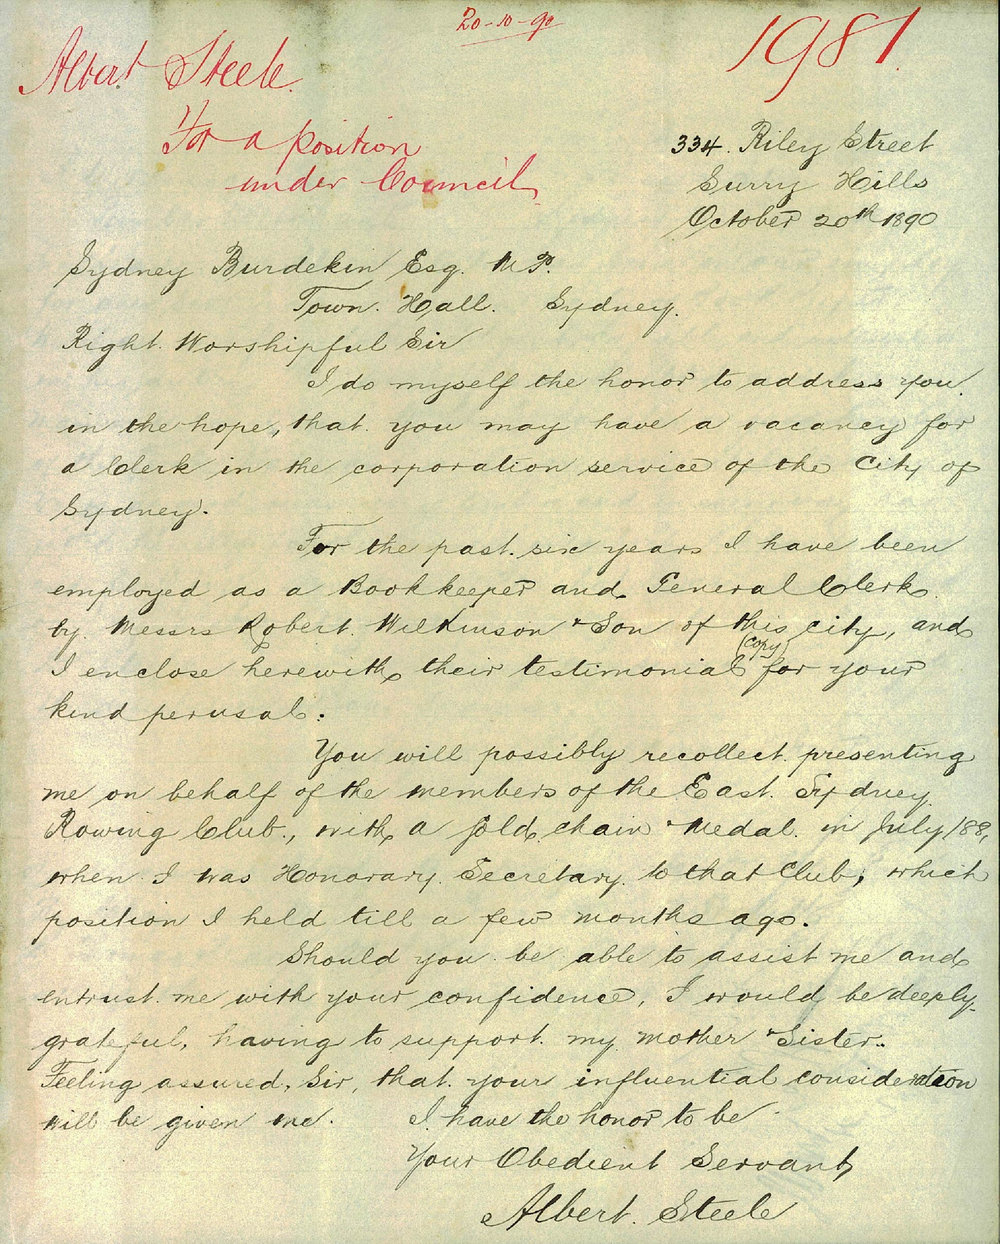 20-10-90
1981
Albert Steele.
For a position
under Council
334. Riley Street
Surry Hills
October 20th 1890
Sydney Burdekin Esq. M.P.
Town Hall. Sydney.
Right Worshipful Sir
I do myself the honor to address you
in the hope, that you may have a vacancy for
a Clerk in the corporation service of the City of
Sydney.
For the past six years I have been
employed as a Bookkeeper and General Clerk
by Messrs Robert Wilkinson & Son of this city, and
(copy)
I enclose herewith their testimonial for your
kind perusal.
You will possibly recollect presenting
me on behalf of the members of the East Sydney
Rowing Club., with a gold chain & Medal in July /88,
when I was Honorary Secretary to that Club, which
position I held till a few months ago.
Should you be able to assist me and
entrust me with your confidence, I would be deeply
grateful, having to support my mother & Sister.
Feeling assured, Sir, that your influential consideration
will be given me.
I have the honor to be
Your Obedient Servant
Albert Steele